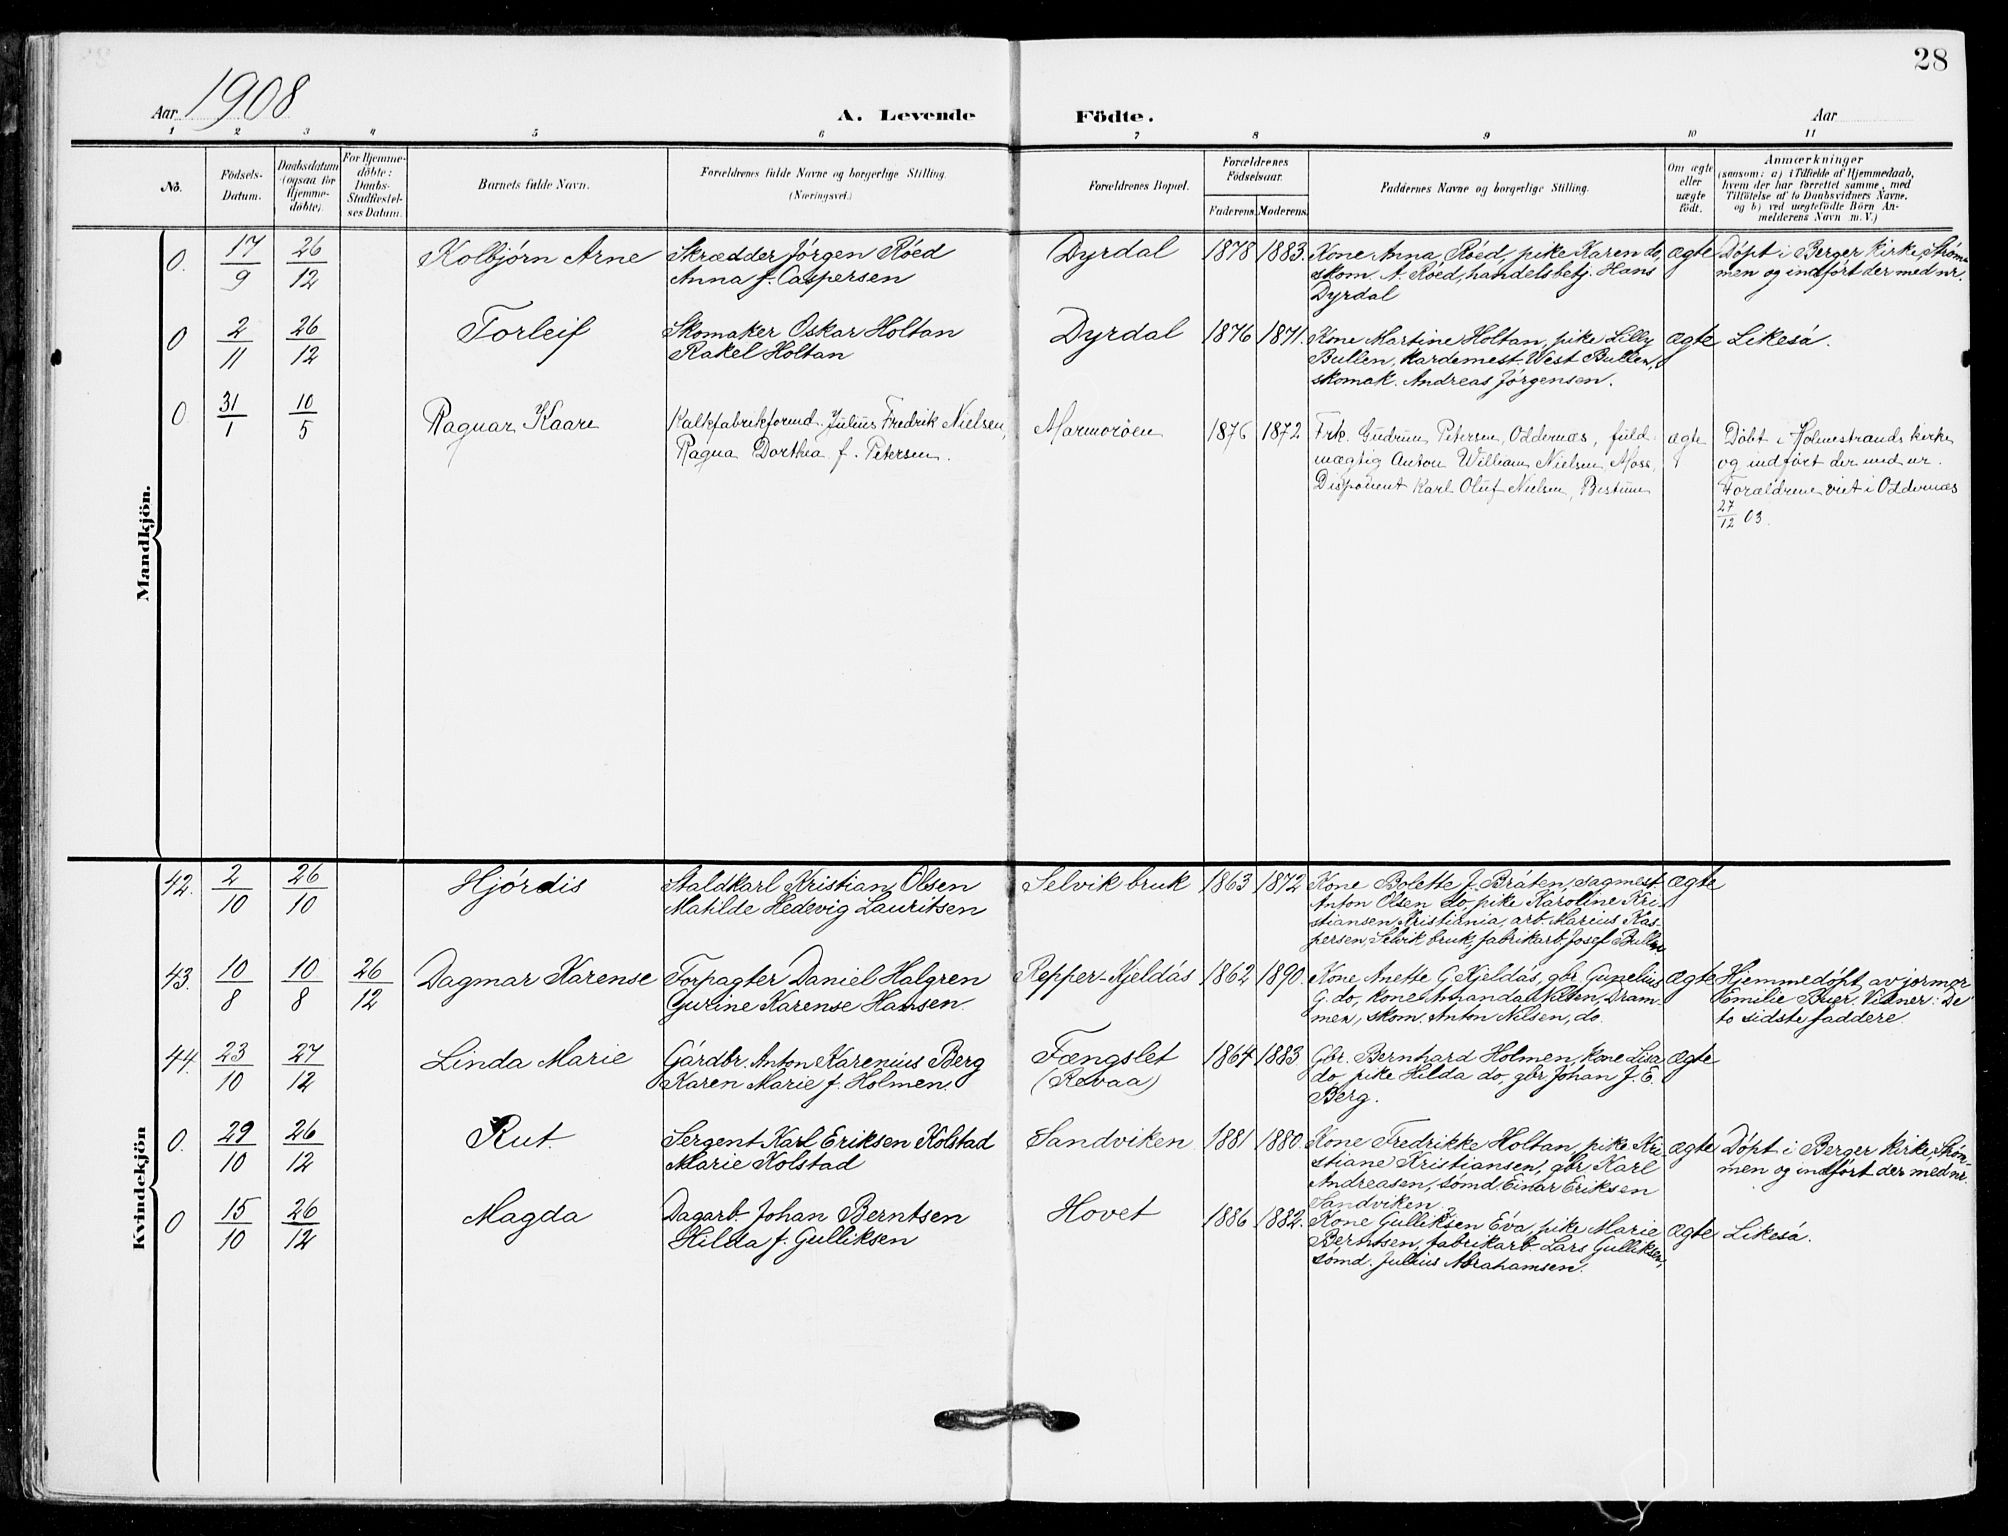 28
Aar 1908
A. Levende Födte.
Aar
1 2 3 4 5 6 7 8 9 10 11
No.
Födsels-
Datum.
Daabsdatum
(ogsaa for
Hjemme-
döbte).
For Hjemme-
döbte:
Daabs-
Stadfæstel-
ses Datum.
Barnets fulde Navn.
Forældrenes fulde Navne og borgerlige Stilling.
(Næringsvei.)
Forældrenes Bopæl.
Forældrenes
Födselsaar.
Faderens. Moderens.
Faddernes Navne og borgerlige Stilling.
Om ægte
eller
uægte
födt.
Anmærkninger
(saasom: a) i Tilfælde af Hjemmedaab,
hvem der har forrettet samme, med
Tilföielse af to Daabsvidners Navne,
og b) ved uægtefödte Börn An-
melderens Navn m. V.)
Mandkjön.
0. 17/9 26/12 Kolbjørn Arne
Skrædder Jörgen Röed
Anna f. Caspersen
Dyrdal 1878 1883.
Kone Anna Röed, pike Karen do,
skom A. Roed, handelsbetj. Hans
Dyrdal
ægte
Döpt i Berger kirke, Ström-
men og indfört der med nr.
0 2/11 26/12 Torleif
Skomaker Oskar Holtan
Rakel Holtan
Dyrdal 1876 1871.
Kone Martine Holtan, pike Lilly
Bullen, kardemest. West Bullen,
skomak. Andreas Jørgensen.
ægte
Likeså.
0 31/1 10/5 Ragnar Kaare
Kalkfabrikformd. Julius Fredrik Nielsen,
Ragna Dorthea f. Petersen.
Marmorøen 1876 1872
Frk. Gudrun Petersen, Oddernæs, fuld-
mægtig Anton William Nielsen, Moss,
Disponent Karl Oluf Nielsen, Bestum
ægte
Døbt i Holmestrands kirke
og indført der med nr.
Forældrene viet i Oddernæs
27/12 03.
Kvindekjön
42. 2/10 26/10 Hjördis
Staldkarl Kristian Olsen
Matilde Hedevig Lauritsen
Selvik bruk 1863 1872
Kone Bolette J. Bråten, sagmest.
Anton Olsen do, pike Karoline Kri-
stiansen, Kristiania, arb. Marius Kas-
persen, Selvik bruk, fabrikarb. Josef Bullen
ægte
43. 10/8 10/8 26/12 Dagmar Karense
Forpagter Daniel Halgren
Gurine Karense Hansen.
Repper-Kjeldås 1862 1890.
Kone Anette G. Kjeldås, gbr. Gunelius
G. do, kone Amanda Nilsen, Dram-
men, skom. Anton Nilsen, do.
ægte
Hjemmedöpt av jormor
Emilie Buer. Vidner: De
to sidste faddere.
44. 23/10 27/12 Linda Marie
Gårdbr. Anton Karenius Berg
Karen Marie f. Holmen.
Fængslet
(Revaa)
1864 1883
Gbr. Bernhard Holmen, kone Lisa
do, pike Hilda do, gbr Johan J. E.
Berg.
ægte
0. 29/10 26/12 Rut.
Sergent Karl Eriksen Kolstad
Marie Kolstad
Sandviken 1881 1880.
Kone Fredrikke Holtan, pike Kri-
stiane Kristiansen, gbr Karl
Andreasen, sömd Einar Eriksen
Sandviken
ægte
Döpt i Berger kirke, Ström-
men og indfört der med nr.
0 15/10 26/12 Magda
Dagarb. Johan Berntsen
Hilda f. Gulliksen
Hovet 1886 1882.
Kone Gulliksen Eva, pike Marie
Berntsen, fabrikarb. Lars Gulliksen,
sömd. Julius Abrahamsen.
ægte
Likeså.